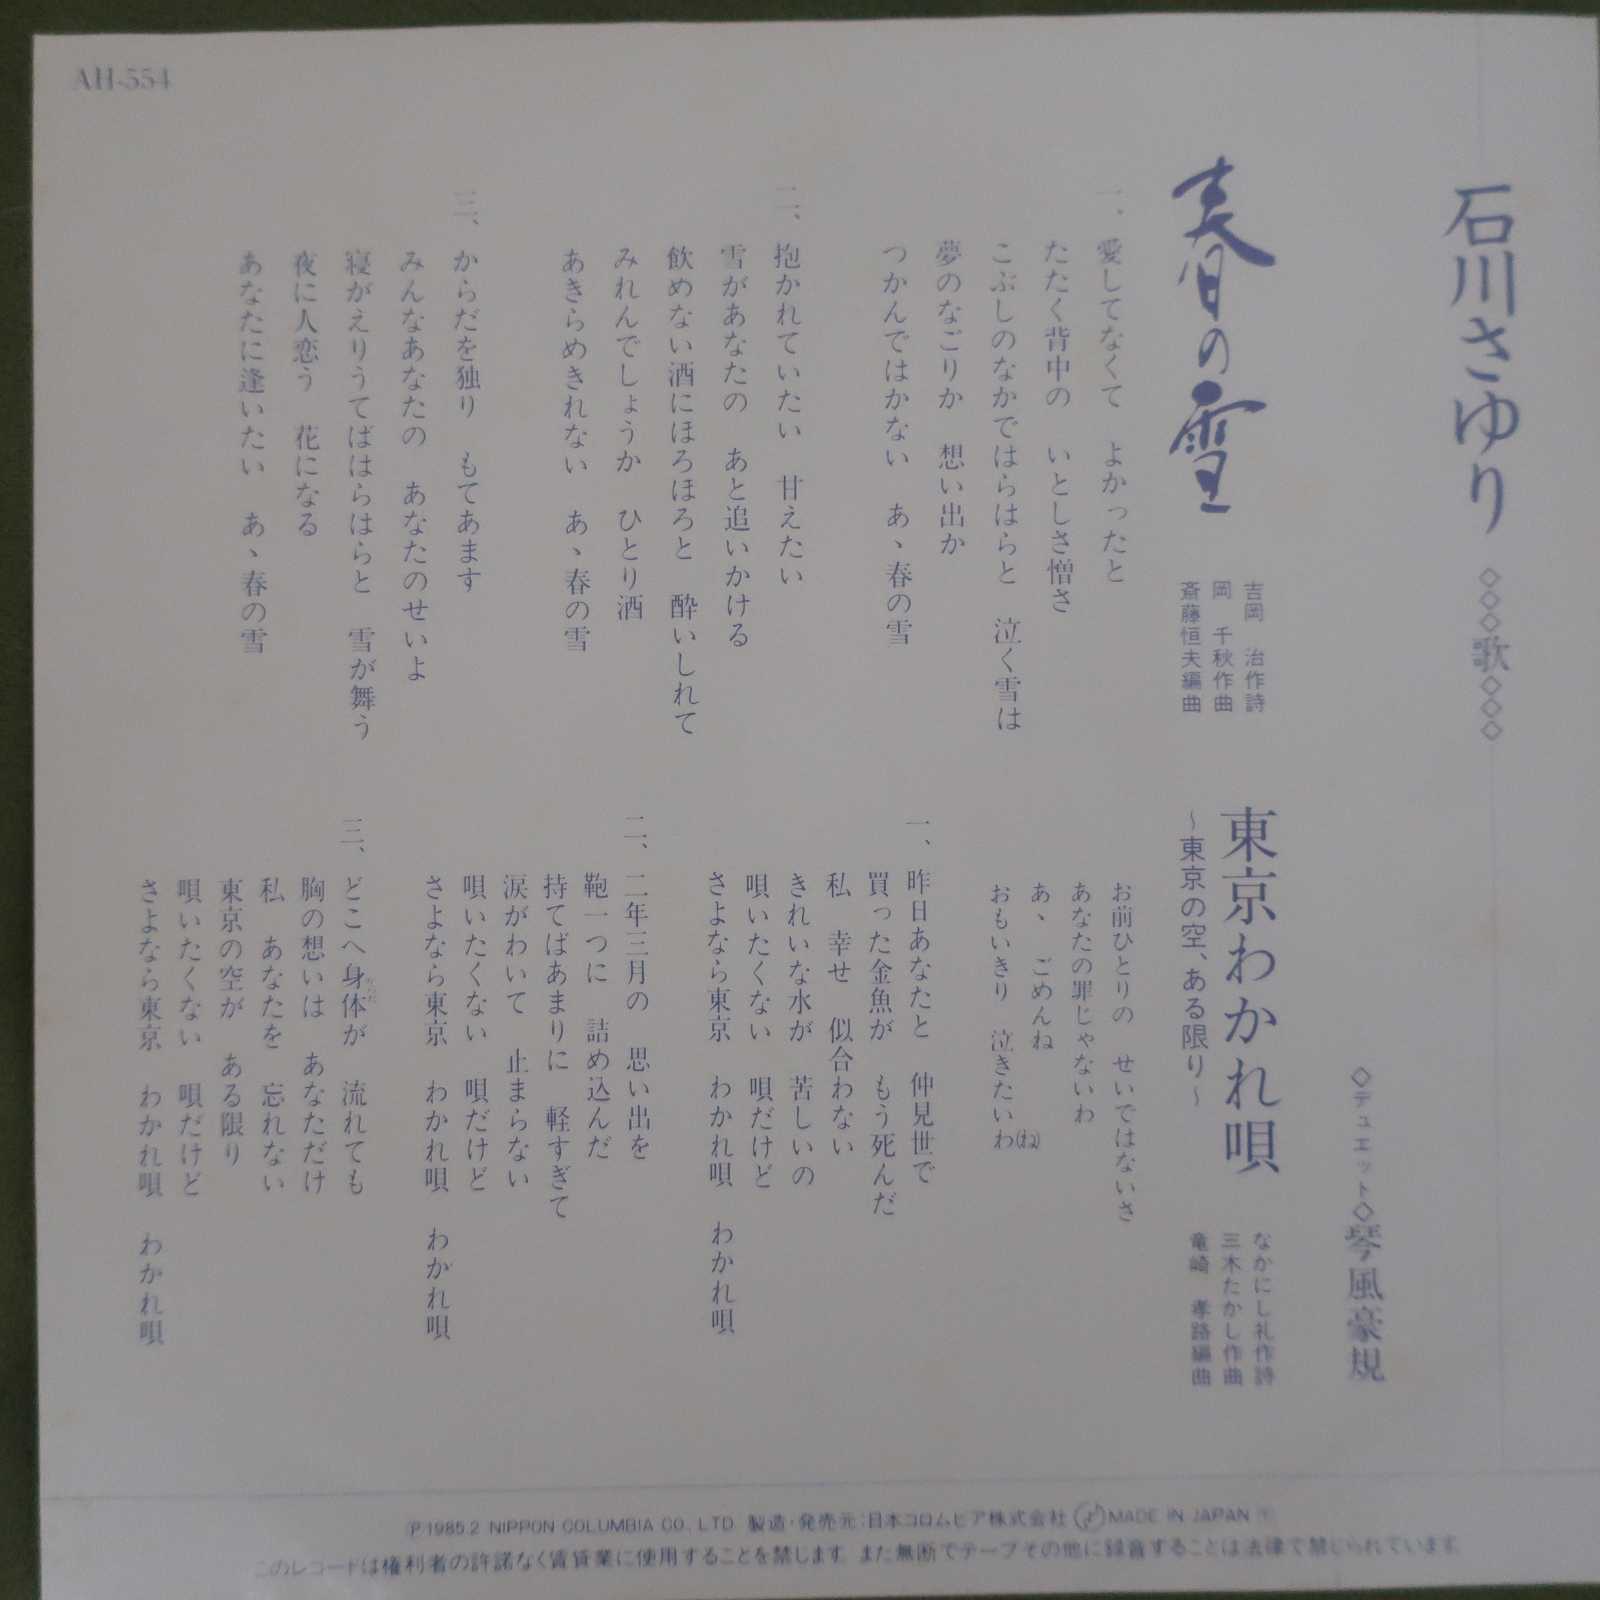 AH-554
石川さゆり ◇◇◇歌◇◇◇
◇デュエット◇琴風豪規
春の雪
吉岡 治作詩
岡 千秋作曲
斎藤恒夫編曲
一、愛してなくて よかったと
たたく背中の いとしさ憎さ
こぶしのなかではらはらと 泣く雪は
夢のなごりか 想い出か
つかんではかない あゝ春の雪
二、抱かれていたい 甘えたい
雪があなたの あと追いかける
飲めない酒にほろほろと 酔いしれて
みれんでしょうか ひとり酒
あきらめきれない あゝ春の雪
三、からだを独り もてあます
みんなあなたの あなたのせいよ
寝がえりうてばはらはらと 雪が舞う
夜に人恋う 花になる
あなたに逢いたい あゝ春の雪
東京わかれ唄
〜東京の空、ある限り〜
なかにし礼作詩
三木たかし作曲
竜崎 孝路編曲
お前ひとりの せいではないさ
あなたの罪じゃないわ
あゝ ごめんね
おもいきり 泣きたいわ(ね)
一、昨日あなたと 仲見世で
買った金魚が もう死んだ
私 幸せ 似合わない
きれいな水が 苦しいの
唄いたくない 唄だけど
さよなら東京 わかれ唄 わかれ唄
二、二年三月の 思い出を
鞄一つに 詰め込んだ
持てばあまりに 軽すぎて
涙がわいて 止まらない
唄いたくない 唄だけど
さよなら東京 わかれ唄 わかれ唄
三、どこへ身体が 流れても
胸の想いは あなただけ
私 あなたを 忘れない
東京の空が ある限り
唄いたくない 唄だけど
さよなら東京 わかれ唄 わかれ唄
Ⓟ1985.2 NIPPON COLUMBIA CO., LTD. 製造・発売元:日本コロムビア株式会社 MADE IN JAPAN
このレコードは権利者の許諾なく賃貸業に使用することを禁じます。また無断でテープその他に録音することは法律で禁じられています。